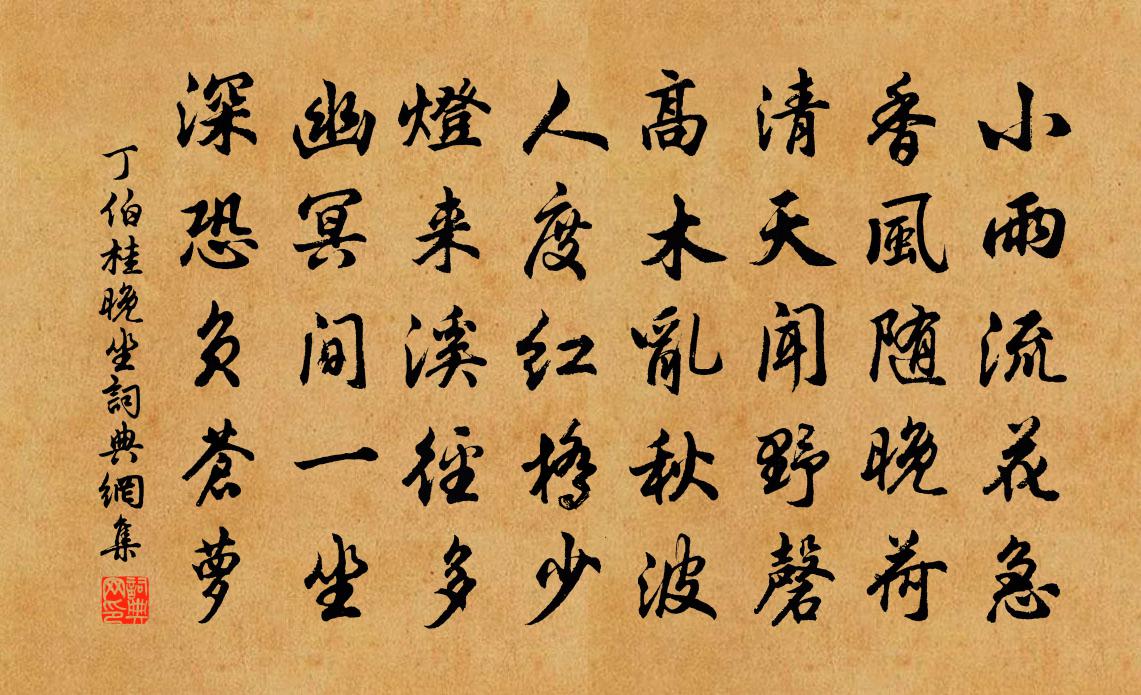 小雨流花急
香風随晚荷
清天聞野磬
高木亂秋波
人度红橋少
燈来溪徑多
幽冥间一坐
深恐负蒼萝
丁伯桂晚坐詞典網集
詞典网印